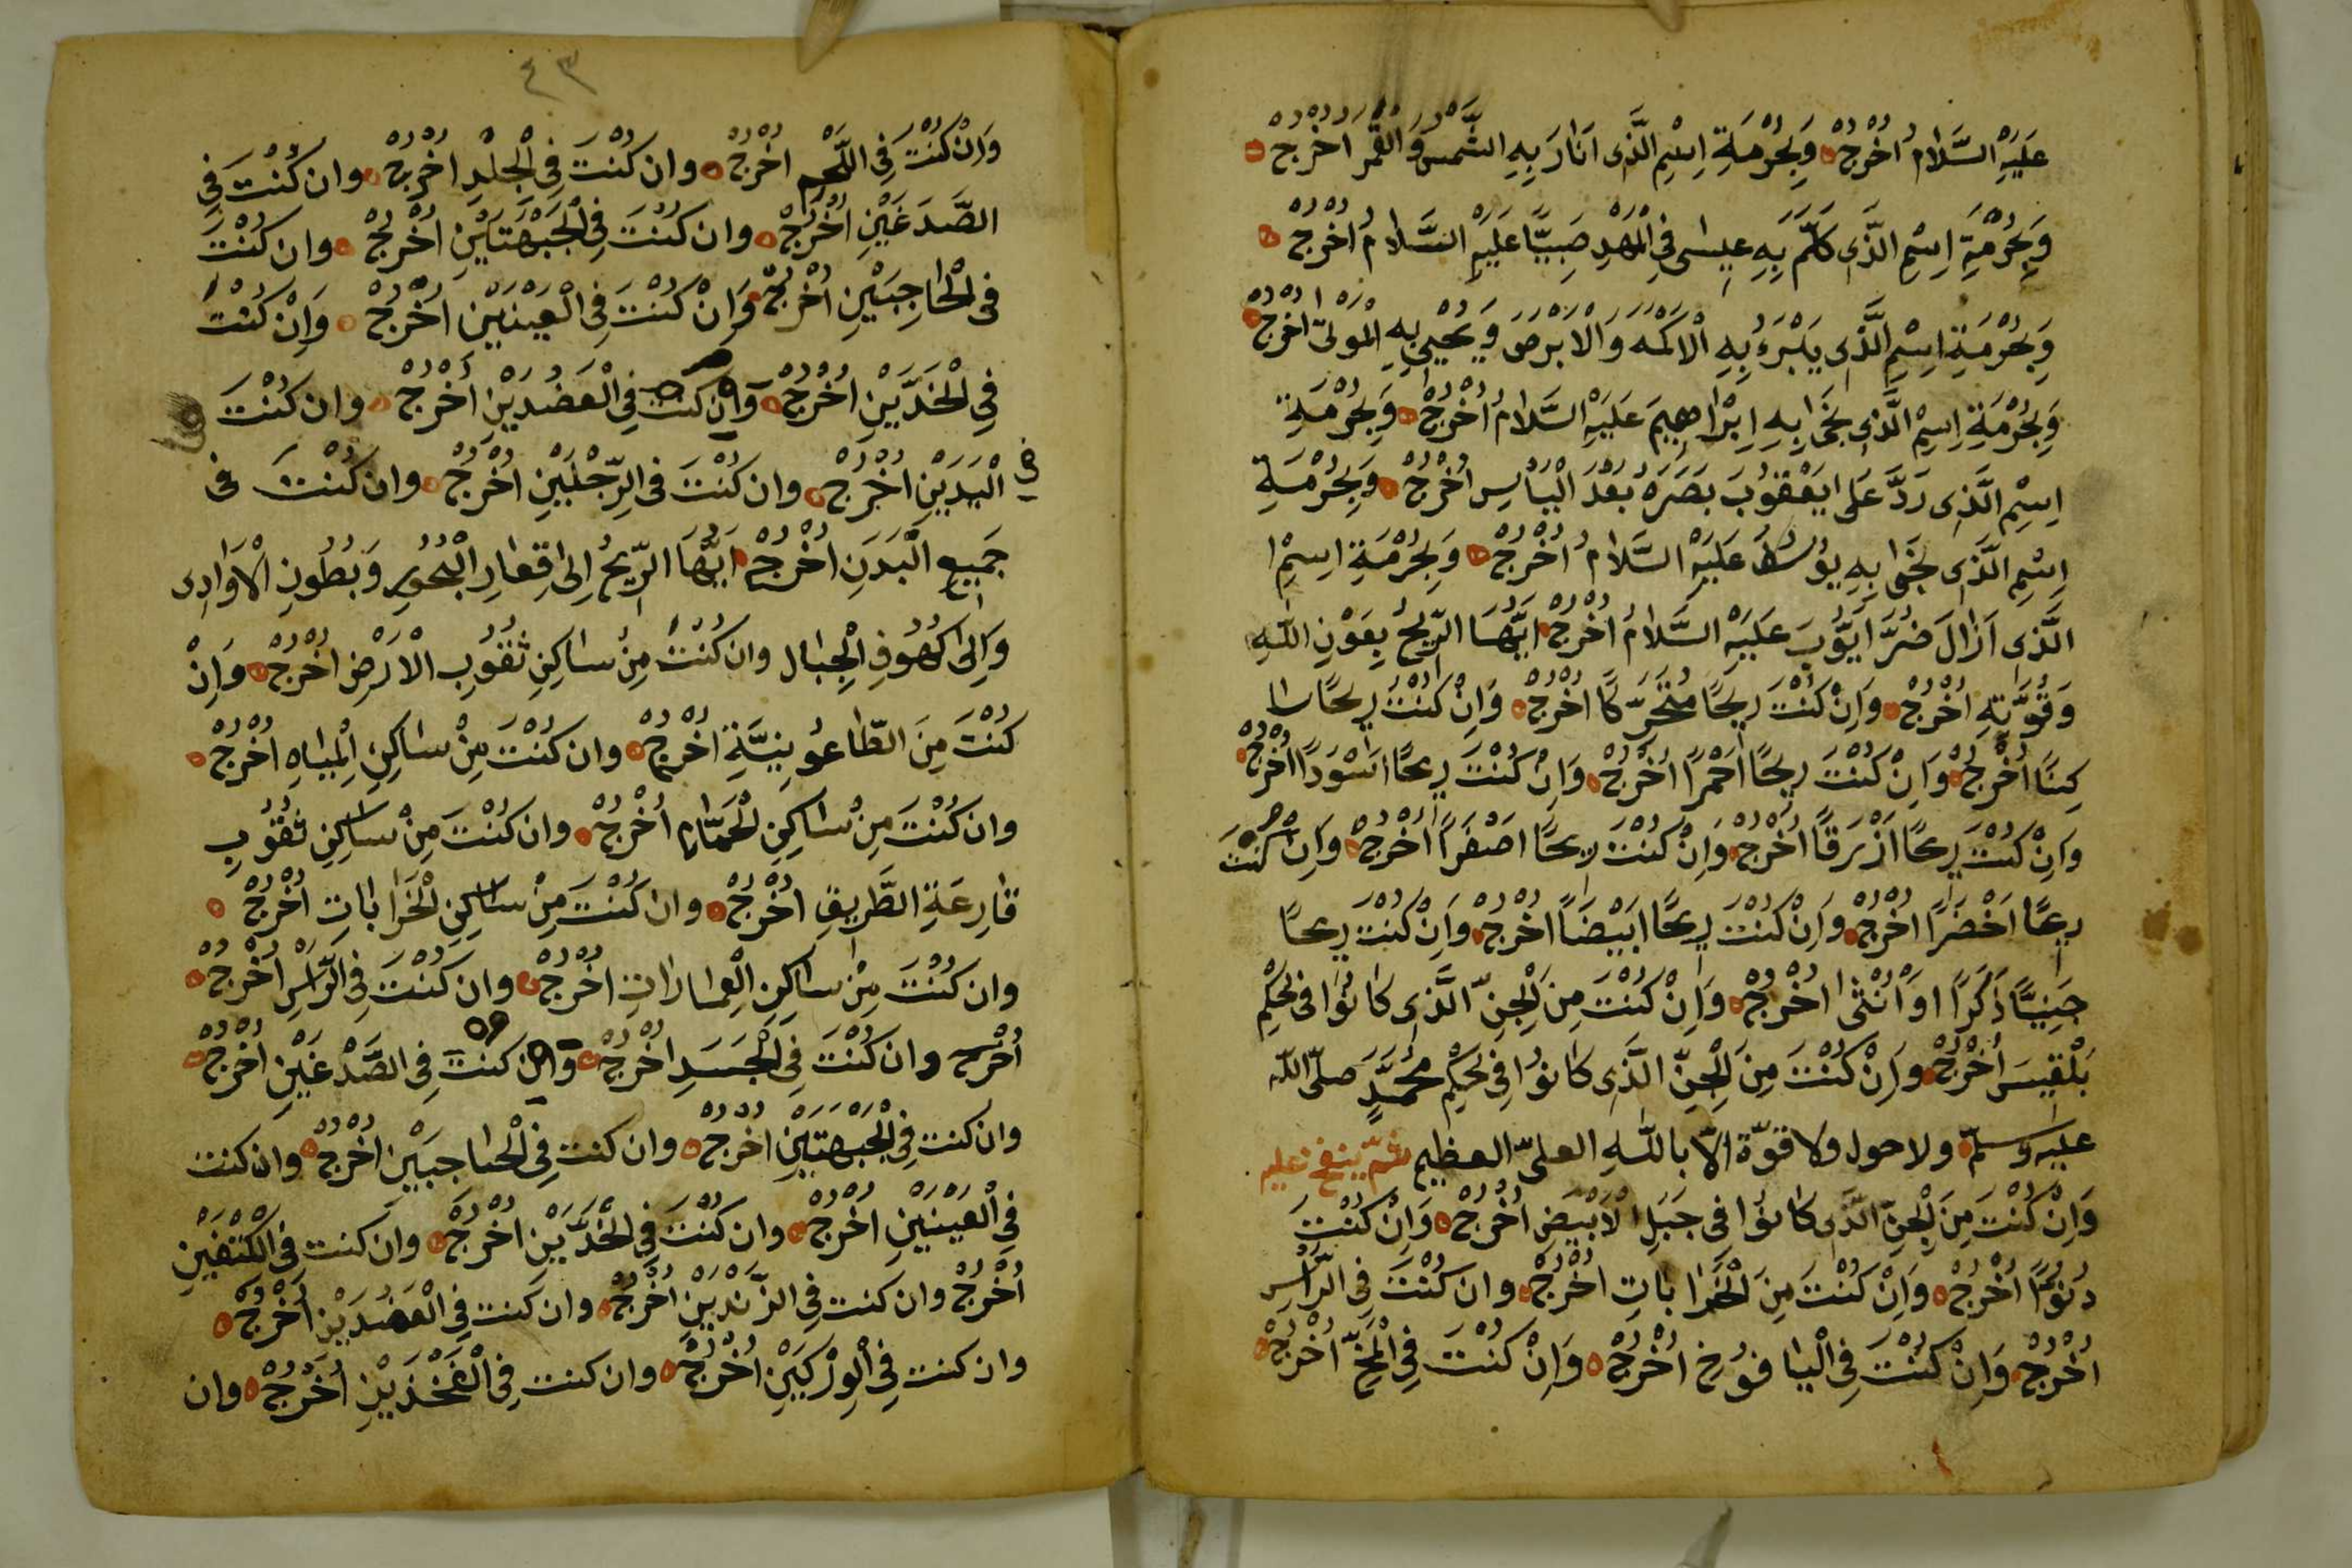 عَلَيْهِ السَّلَامُ اُخْرُجْ وَبِحُرْمَةِ اِسْمِ الَّذِى اَنَارَ بِهِ الشَّمْسَ وَالْقَمَرَ اُخْرُجْ
وَبِحُرْمَةِ اِسْمِ الَّذِى كَلَّمَ بِهِ عِيسٰى فِى الْمَهْدِ صَبِيًّا عَلَيْهِ السَّلَامُ اُخْرُجْ
وَبِحُرْمَةِ اِسْمِ الَّذِى يَبْرَءُ بِهِ الْاَكْمَهَ وَالْاَبْرَصَ وَيُحْيِى بِهِ الْمَوْتٰى اُخْرُجْ
وَبِحُرْمَةِ اِسْمِ الَّذِى نَجٰى بِهِ اِبْرَاهِيمَ عَلَيْهِ السَّلَامُ اُخْرُجْ وَبِحُرْمَةِ
اِسْمِ الَّذِى رَدَّ عَلٰى يَعْقُوبَ بَصَرَهُ بَعْدَ الْيَاْسِ اُخْرُجْ وَبِحُرْمَةِ
اِسْمِ الَّذِى نَجٰى بِهِ يُوسُفَ عَلَيْهِ السَّلَامُ اُخْرُجْ وَبِحُرْمَةِ اِسْمِ
الَّذِى اَزَالَ ضُرَّ اَيُّوبَ عَلَيْهِ السَّلَامُ اُخْرُجْ اَيُّهَا الرِّيحُ بِعَوْنِ اللّٰهِ
وَقُوَّتِهِ اُخْرُجْ وَاِنْ كُنْتَ رِيحًا مُتَحَرِّكًا اُخْرُجْ وَاِنْ كُنْتَ رِيحًا سا
كِنًا اُخْرُجْ وَاِنْ كُنْتَ رِيحًا اَحْمَرًا اُخْرُجْ وَاِنْ كُنْتَ رِيحًا اَسْوَدًا اُخْرُجْ
وَاِنْ كُنْتَ رِيحًا اَزْرَقًا اُخْرُجْ وَاِنْ كُنْتَ رِيحًا اَصْفَرًا اُخْرُجْ وَاِنْ كُنْتَ
رِيحًا اَخْضَرًا اُخْرُجْ وَاِنْ كُنْتَ رِيحًا اَبْيَضًا اُخْرُجْ وَاِنْ كُنْتَ رِيحًا
جَنِيًّا ذَكَرًا اَوْ اُنْثٰى اُخْرُجْ وَاِنْ كُنْتَ مِنَ الْجِنِّ الَّذِى كَانُوا فِى حُكْمِ
بَلْقِيسَ اُخْرُجْ وَاِنْ كُنْتَ مِنَ الْجِنِّ الَّذِى كَانُوا فِى حُكْمِ مُحَمَّدٍ صَلَّى اللّٰه
عليه وسلّم ولا حول ولا قوّة الّا باللّٰهِ العلىّ العظيم ثمّ ينفخ عليه
وَاِنْ كُنْتَ مِنَ الْجِنِّ الَّذِى كَانُوا فِى جَبَلِ الْاَبْيَضِ اُخْرُجْ وَاِنْ كُنْتَ
اُخْرُجْ وَاِنْ كُنْتَ مِنَ الْخَرَابَاتِ اُخْرُجْ وان كُنْتَ فِى الرَّاْسِ
اُخْرُجْ وَاِنْ كُنْتَ فِى الْيَافُوخِ اُخْرُجْ وَاِنْ كُنْتَ فِى الْمُخِّ اُخْرُجْ
٤٣
وَاِنْ كُنْتَ فِى اللَّحْمِ اُخْرُجْ وان كُنْتَ فِى الْجِلْدِ اُخْرُجْ وان كُنْتَ فِى
الصَّدَغَيْنِ اُخْرُجْ وان كُنْتَ فِى الْجَبْهَتَيْنِ اُخْرُجْ وان كُنْتَ
فِى الْحَاجِبَيْنِ اُخْرُجْ وَاِنْ كُنْتَ فِى الْعَيْنَيْنِ اُخْرُجْ وَاِنْ كُنْتَ
فِى الْخَدَّيْنِ اُخْرُجْ وَاِنْ كُنْتَ فِى الْعَضُدَيْنِ اُخْرُجْ وان كُنْتَ
فى الْيَدَيْنِ اُخْرُجْ وان كُنْتَ فِى الرِّجْلَيْنِ اُخْرُجْ وان كُنْتَ فى
جَمِيعِ الْبَدَنِ اُخْرُجْ اَيُّهَا الرِّيحُ اِلٰى قِعَارِ الْبُحُورِ وَبُطُونِ الْاَوَادِى
وَاِلٰى كُهُوفِ الْجِبَالِ وان كُنْتَ مِنْ سَاكِنِ ثُقُوبِ الْاَرْضِ اُخْرُجْ وَاِنْ
كُنْتَ مِنَ الطَّاعُونِيَّةِ اُخْرُجْ وان كُنْتَ مِنْ سَاكِنِ الْمِيَاهِ اُخْرُجْ
وان كُنْتَ مِنْ سَاكِنِ الْحَمَّامِ اُخْرُجْ وان كُنْتَ مِنْ سَاكِنِ ثُقُوبِ
قَارِعَةِ الطَّرِيقِ اُخْرُجْ وان كُنْتَ مِنْ سَاكِنِ الْخَرَابَاتِ اُخْرُجْ
وان كُنْتَ مِنْ سَاكِنِ الْعِمَارَاتِ اُخْرُجْ وان كُنْتَ فِى الرَّاْسِ اُخْرُجْ
اُخْرُجْ وان كُنْتَ فِى الْجَسَدِ اُخْرُجْ وان كُنْتَ فِى الصَّدْغَيْنِ اُخْرُجْ
وان كنت فِى الْجَبْهَتَيْنِ اُخْرُجْ وان كنت فِى الْحَاجِبَيْنِ اُخْرُجْ وان كنت
فِى الْعَيْنَيْنِ اُخْرُجْ وان كُنْتَ فِى الْخَدَّيْنِ اُخْرُجْ وان كنت فى الْكَتْفَيْنِ
اُخْرُجْ وان كنت فِى الزَّنْدَيْنِ اُخْرُجْ وان كنت فِى الْعَضُدَيْنِ اُخْرُجْ
وان كنت فِى الْوِرْكَيْنِ اُخْرُجْ وان كنت فِى الْفَخْذَيْنِ اُخْرُجْ وان